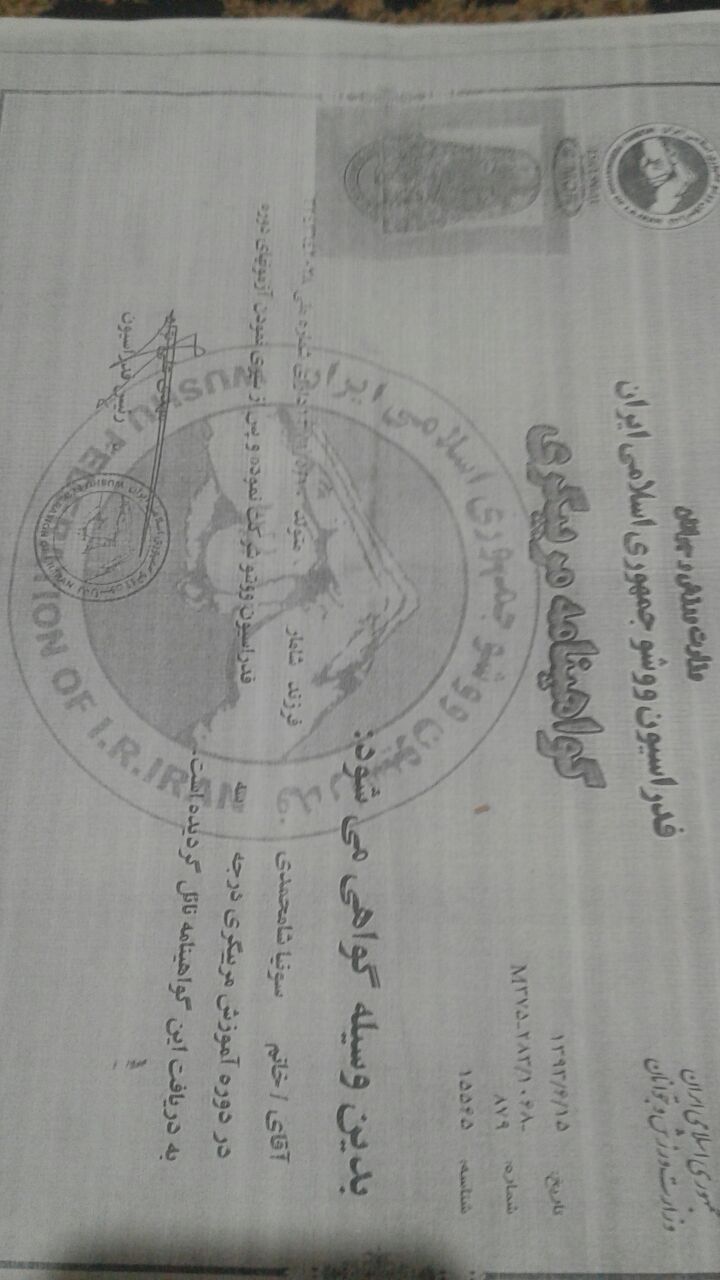 جمهوری اسلامی ایران
وزارت ورزش و جوانان
وزارت ورزش و جوانان
فدراسیون ووشو جمهوری اسلامی ایران
گواهینامه مربیگری
تاریخ: ۱۳۹۳/۶/۱۵
شماره: M۲۷۵-۲۸۳/۱۰۶۸-
۸۷۹
شناسه: ۱۵۵۶۵
بدین وسیله گواهی می شود:
آقای / خانم سونیا شامحمدی فرزند شامار متولد دارای شماره ملی
در دوره آموزش مربیگری درجه سه فدراسیون ووشو شرکت نموده و پس از سپری نمودن آزمونهای دوره
به دریافت این گواهینامه نائل گردیده است.
رئیس فدراسیون
فدراسیون ووشو جمهوری اسلامی ایران
WUSHU FEDERATION OF I.R.IRAN